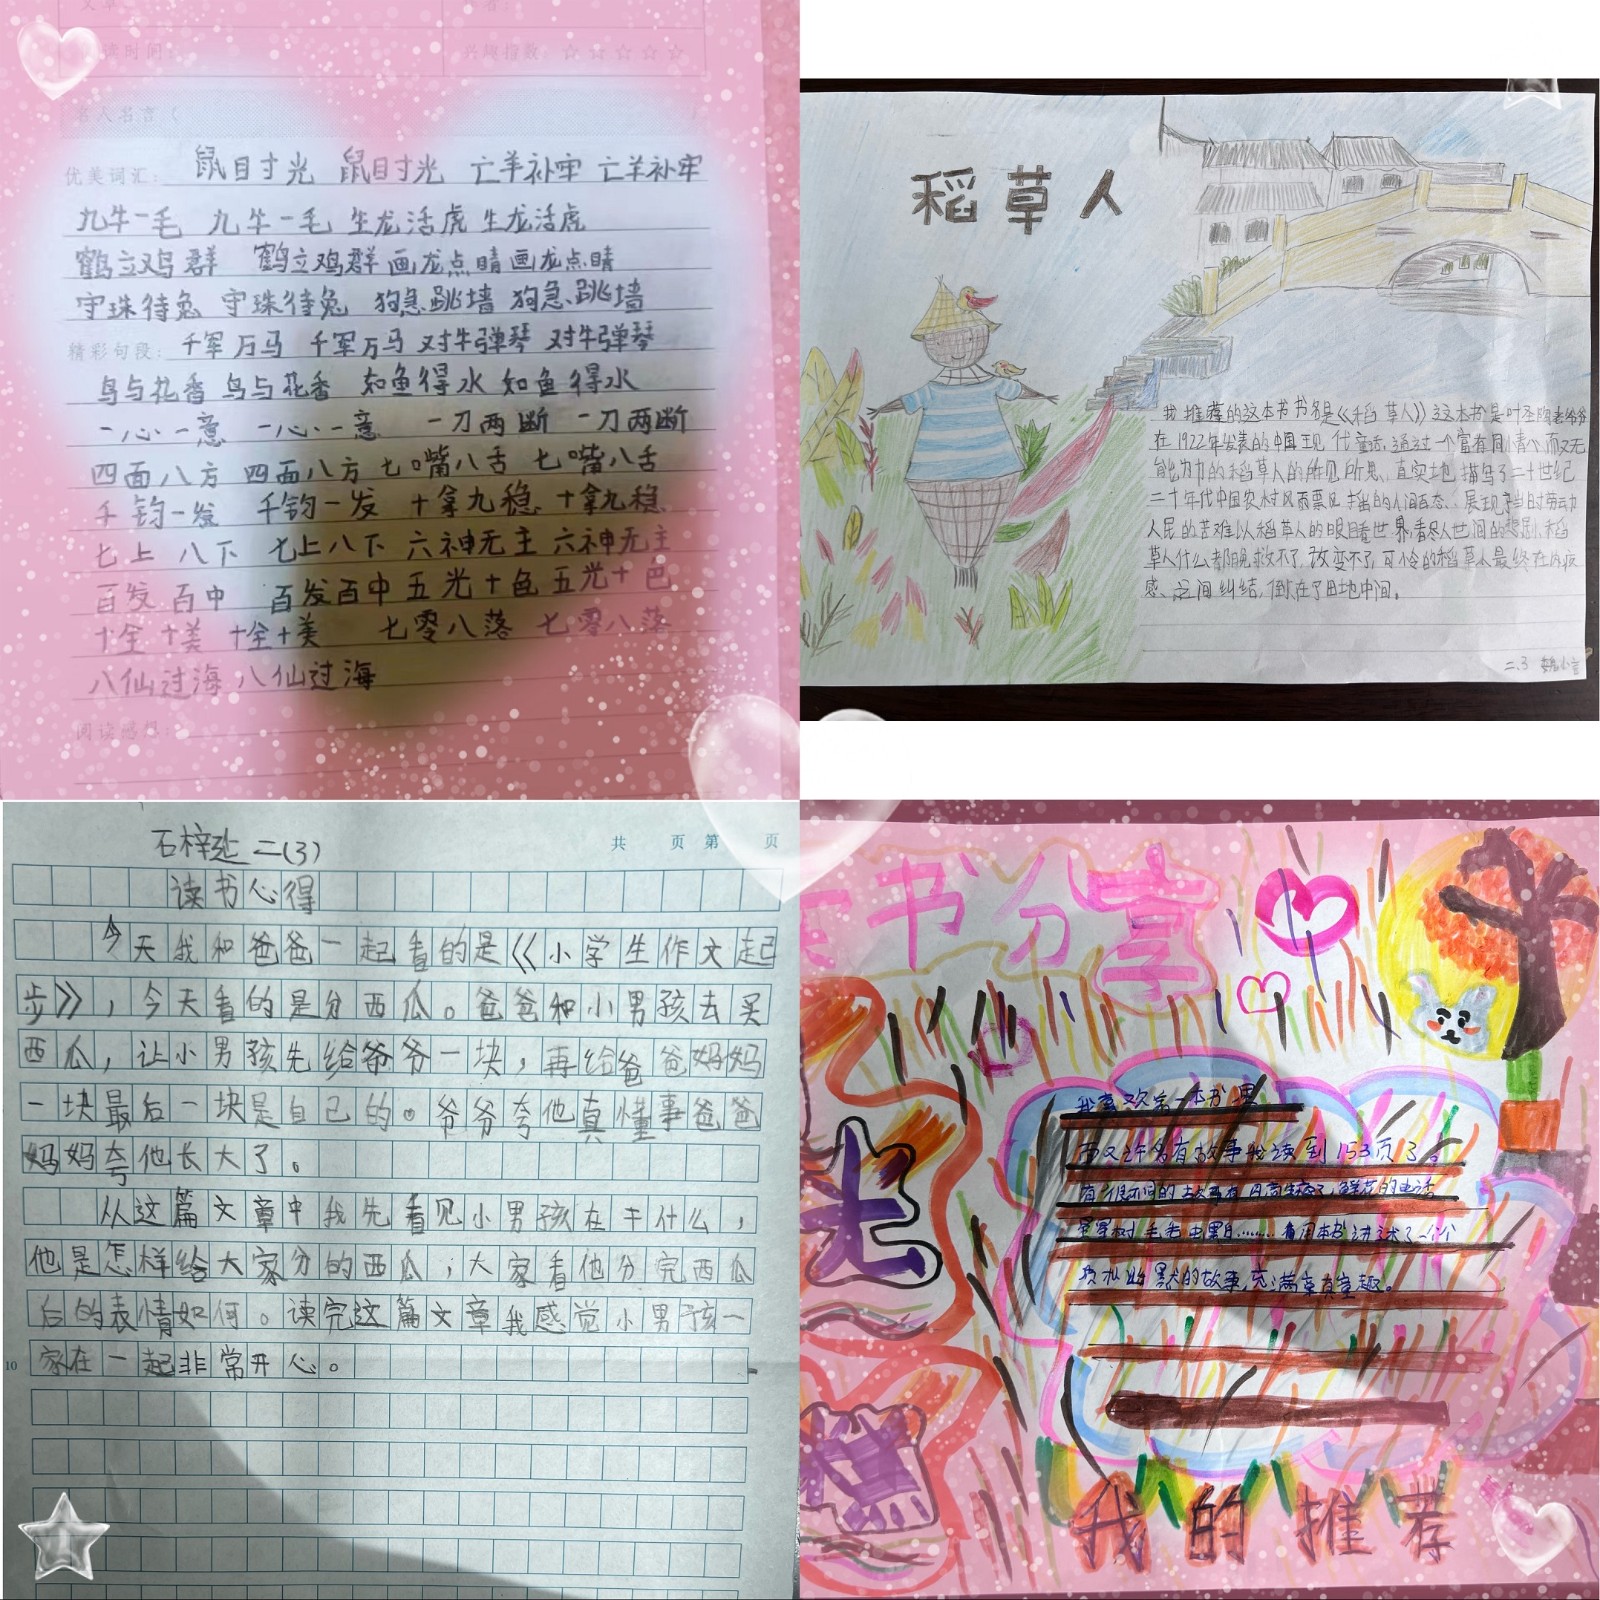 阅读时间：
兴趣指数：☆☆☆☆☆
名人名言（
优美词汇： 鼠目寸光 鼠目寸光 亡羊补牢 亡羊补牢
九牛一毛 九牛一毛 生龙活虎 生龙活虎
鹤立鸡群 鹤立鸡群 画龙点睛 画龙点睛
守珠待兔 守珠待兔 狗急跳墙 狗急跳墙
精彩句段： 千军万马 千军万马 对牛弹琴 对牛弹琴
鸟与花香 鸟与花香 如鱼得水 如鱼得水
一心一意 一心一意 一刀两断 一刀两断
四面八方 四面八方 七嘴八舌 七嘴八舌
千钧一发 千钧一发 十拿九稳 十拿九稳
七上八下 七上八下 六神无主 六神无主
百发百中 百发百中 五光十色 五光十色
十全十美 十全十美 七零八落 七零八落
八仙过海 八仙过海
阅读感想：
稻草人
我推荐的这本书书名是《稻草人》这本书是叶圣陶爷爷
在1922年发表的中国现代童话，通过一个富有同情心而又无
能力的稻草人的所见所思，真实地描写了二十世纪
二十年代中国农村风雨飘摇的人间百态，展现了当时劳动
人民的苦难以稻草人的眼睛看世界，看尽人世间的悲剧，稻
草人什么都阻救不了，改变不了，可怜的稻草人最终在内疚
感之间纠结，倒在了田地中间。
二.3
石梓 二(3)
共 页 第 页
读书心得
今天我和爸爸一起看的是《小学生作文起
步》，今天看的是分西瓜。爸爸和小男孩去买
西瓜，让小男孩先给爷爷一块，再给爸爸妈妈
一块最后一块是自己的。爷爷夸他真懂事爸爸
妈妈夸他长大了。
从这篇文章中我先看见小男孩在干什么，
他是怎样给大家分的西瓜；大家看他分完西瓜
后的表情如何。读完这篇文章我感觉小男孩一
10 家在一起非常开心。
书分享
我喜欢第一本书里
有故事我读到153页了。
鲜花的电话
毛毛虫 ……
的故事，充满童真童趣。
我的推荐